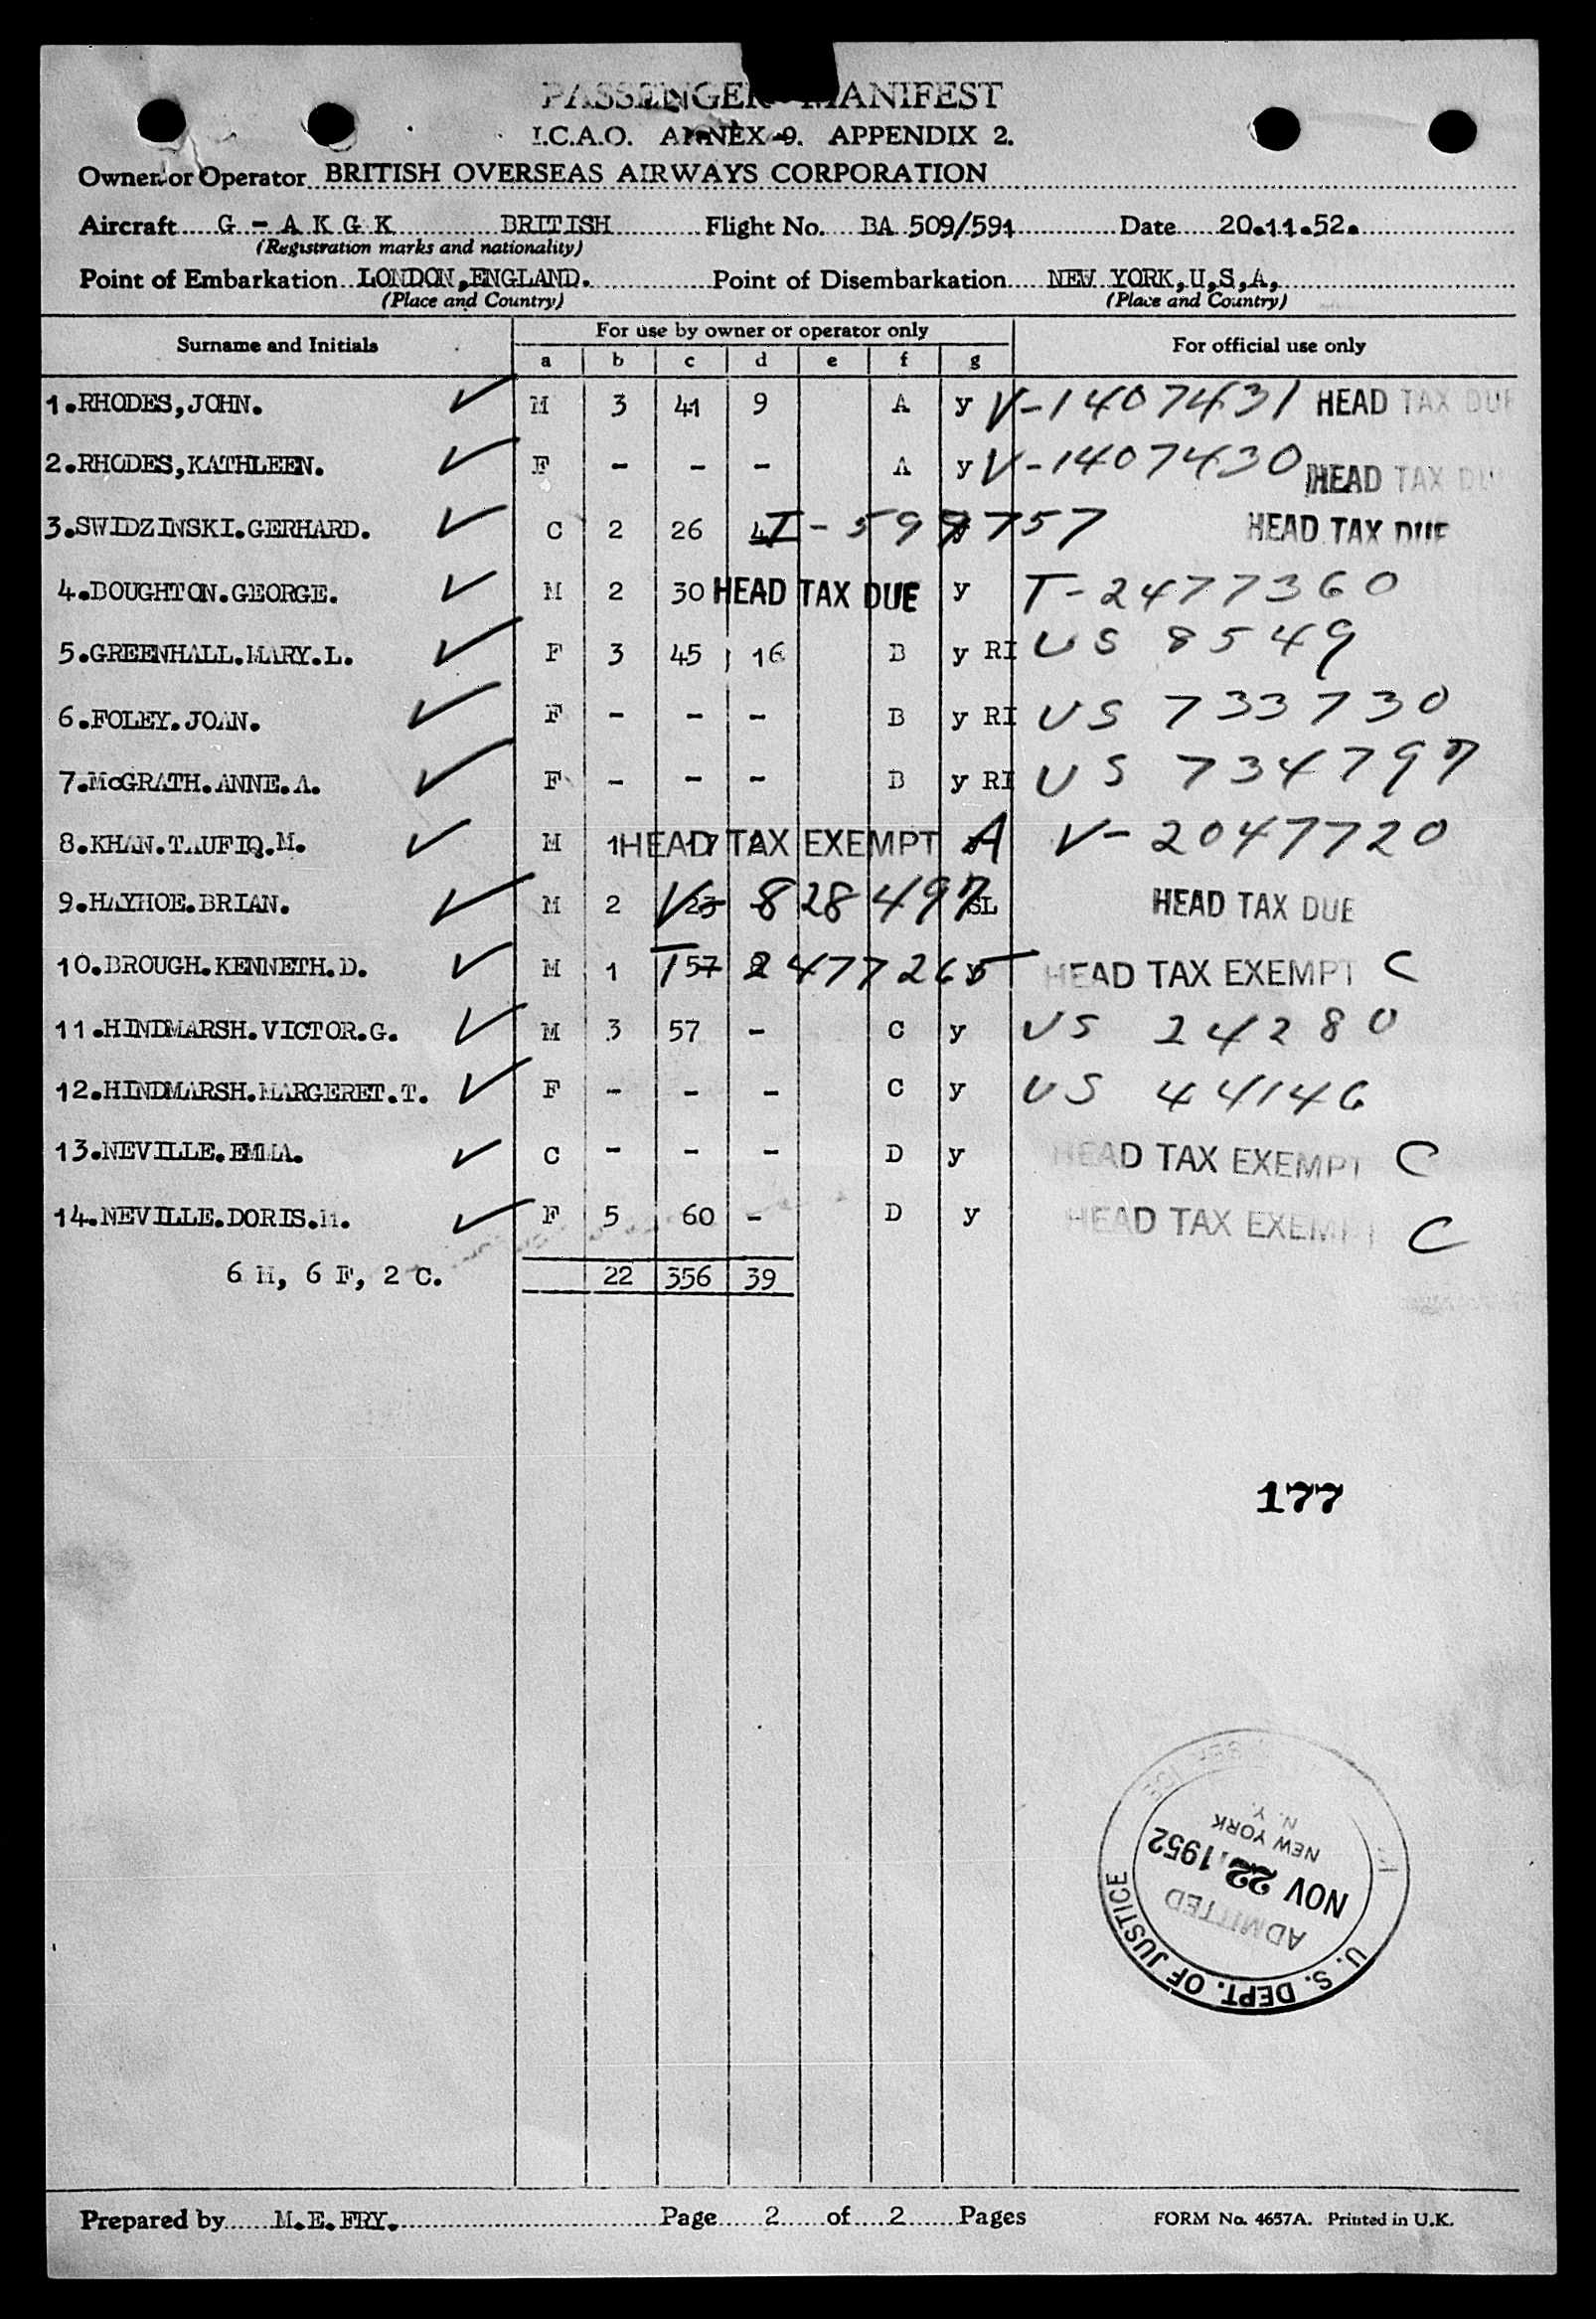 PASSENGER MANIFEST
I.C.A.O. ANNEX 9. APPENDIX 2.
Owner or Operator BRITISH OVERSEAS AIRWAYS CORPORATION
Aircraft G - A K G K BRITISH Flight No. BA 509/591 Date 20.11.52.
(Registration marks and nationality)
Point of Embarkation LONDON,ENGLAND. Point of Disembarkation NEW YORK,U,S,A,
(Place and Country) (Place and Country)
Surname and Initials For use by owner or operator only For official use only
a b c d e f g
1.RHODES,JOHN. M 3 41 9 A y V-1407431 HEAD TAX DUE
2.RHODES,KATHLEEN. F - - - A y V-1407430 HEAD TAX DUE
3.SWIDZINSKI.GERHARD. C 2 26 4 T-599757 HEAD TAX DUE
4.BOUGHTON.GEORGE. M 2 30 HEAD TAX DUE y T-2477360
5.GREENHALL.MARY.L. F 3 45 16 B y RI US 8549
6.FOLEY.JOAN. F - - - B y RI US 733730
7.McGRATH.ANNE.A. F - - - B y RI US 734797
8.KHAN.TAUFIQ.M. M 1 17 HEAD TAX EXEMPT A V-2047720
9.HAYHOE.BRIAN. M 2 23 - V-828497 SL HEAD TAX DUE
10.BROUGH.KENNETH.D. M 1 57 T-2477265 HEAD TAX EXEMPT C
11.HINDMARSH.VICTOR.G. M 3 57 - C y US 24280
12.HINDMARSH.MARGERET.T. F - - - C y US 44146
13.NEVILLE.EMMA. C - - - D y HEAD TAX EXEMPT C
14.NEVILLE.DORIS.M. F 5 60 - D y HEAD TAX EXEMPT C
6 M, 6 F, 2 C. 22 356 39
177
N. Y.
NEW YORK
NOV 22 1952
ADMITTED
U. S. DEPT. OF JUSTICE
Prepared by M.E.FRY. Page 2 of 2 Pages FORM No. 4657A. Printed in U.K.